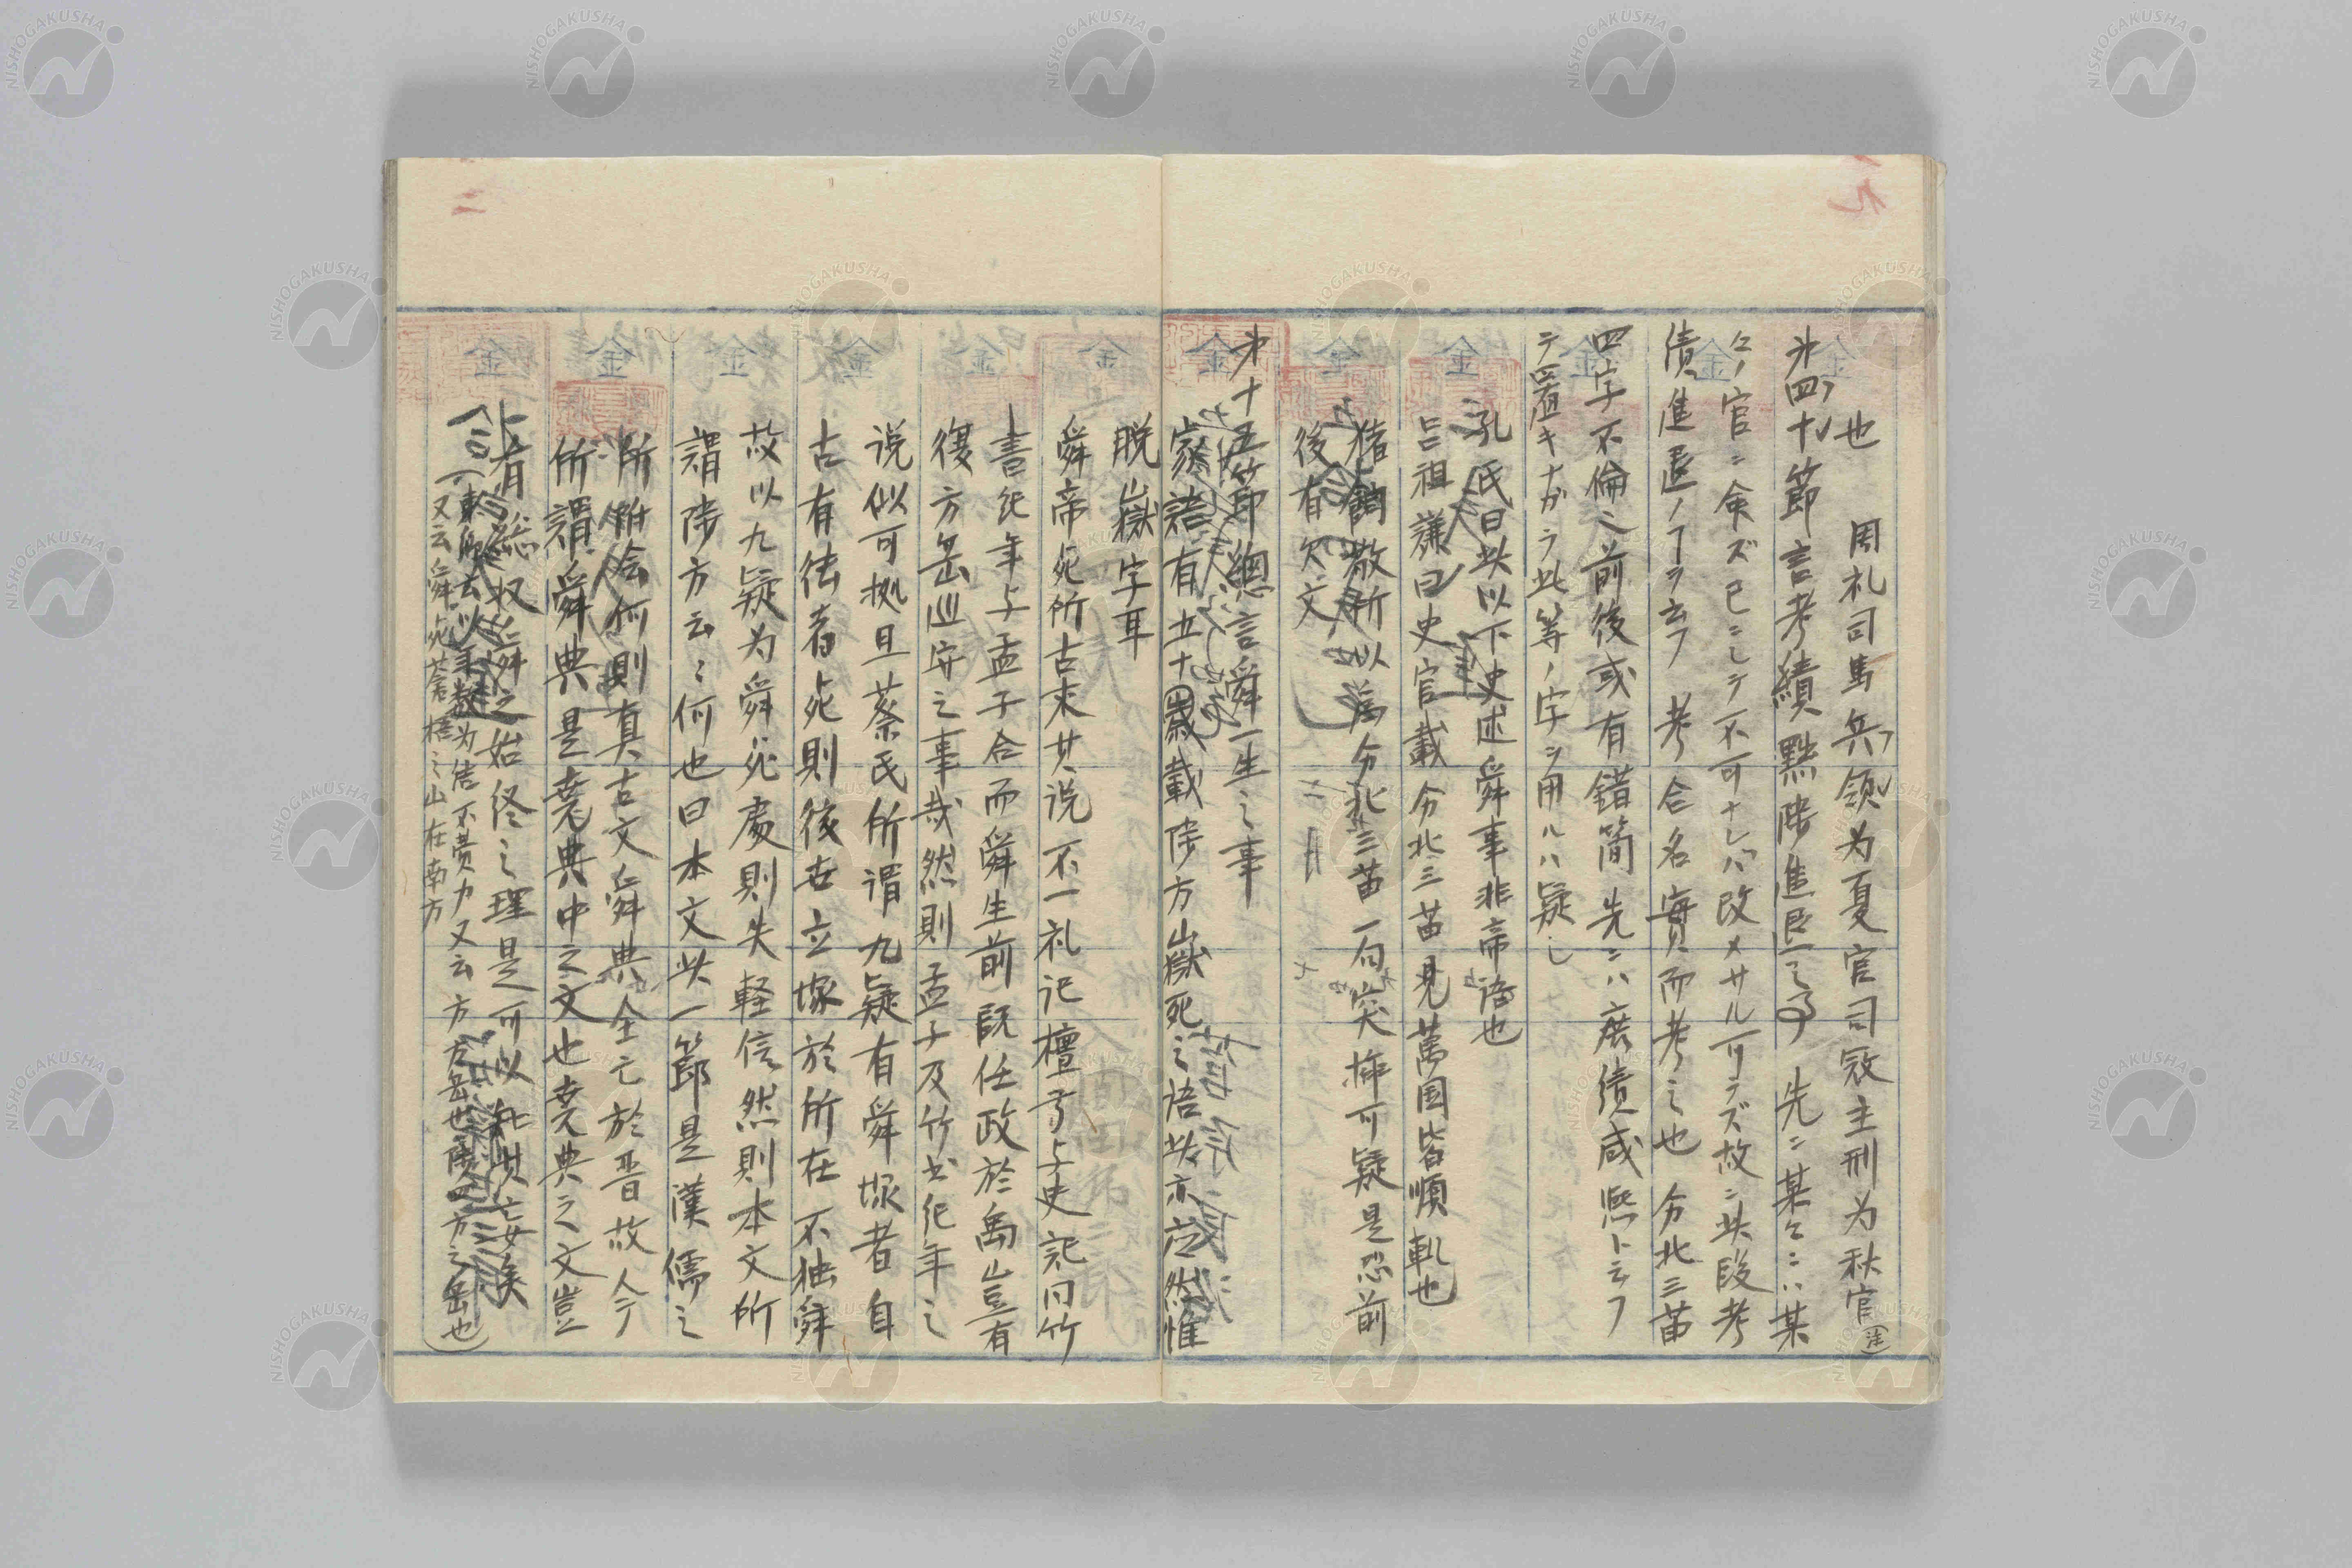 也　周礼司馬兵領为夏官司冦主刑为秋官(注)
㐧四十節言考績黜陟進臣之事　先ニ某々ニハ某
々ノ官ニ命ズ已ニシテ不可ナレバ改メサル可ラズ故ニ此段考
績進退ノヿヲ云フ　考合名實而考之也　分北三苗
四字不倫之前後或有錯簡先ニハ庶績咸熙ト云フ
テ置キナガラ此等ノ字ヲ用ルハ疑シ
孔氏曰此以下史述舜事非帝語也
呂祖謙曰史官載分北三苗見萬国皆順軌也
猪飼敬所以為分北三苗一句突揷可疑是恐前
後有欠文
㐧十五節總言舜一生之事
家語有五十載陟方嶽死之语此亦应然惟
脱嶽字耳
舜帝死所古来其说不一礼记檀弓与史記同竹
書纪年与孟子合而舜生前既任政於禹豈有
復方岳巡守之事哉然則孟子及竹书纪年之
说似可拠且蔡氏所谓九疑有舜塚者自
古有徳者死則後世立塚於所在不独舜
故以九疑为舜死處則失軽信然則本文所
謂陟方云々何也曰本文此一節是漢儒之
所附会何則真古文舜典全亡於晋故今
所謂舜典是堯典中之文也堯典之文豈
有総収舜之始终之理是可以
以年数为徳不费力又云方方岳也陟四方之岳也)
又云舜死蒼梧之山在南方
NISHOGAKUSHA